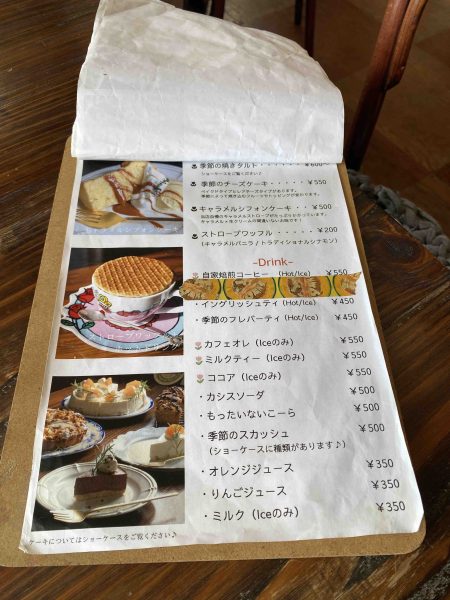 季節の焼きタルト・・・・・ ¥600〜
ショーケースをご覧ください♪
季節のチーズケーキ・・・・・ ¥550
キャラメルシフォンケーキ・・ ¥500
ストロープワッフル・・・・・ ¥200
(キャラメルバニラ / トラディショナルシナモン)
-Drink-
自家焙煎コーヒー (Hot/Ice) ¥550
・イングリッシュティ (Hot/Ice) ¥450
・季節のフレバーティ (Hot/Ice) ¥450
カフェオレ (Iceのみ) ¥550
ミルクティー (Iceのみ) ¥550
ココア (Iceのみ) ¥550
・カシスソーダ ¥500
・もったいないこーら ¥500
・季節のスカッシュ ¥500
(ショーケースに種類があります♪)
・オレンジジュース ¥350
・りんごジュース ¥350
・ミルク (Iceのみ) ¥350
ケーキについてはショーケースをご覧ください♪